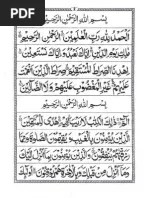 ٢
بِسْمِ اللهِ الرَّحْمٰنِ الرَّحِيْمِ
اَلْحَمْدُ لِلّٰهِ رَبِّ الْعٰلَمِيْنَ الرَّحْمٰنِ الرَّحِيْمِ
مٰلِكِ يَوْمِ الدِّيْنِ اِيَّاكَ نَعْبُدُ وَاِيَّاكَ نَسْتَعِيْنُ
اِهْدِنَا الصِّرَاطَ الْمُسْتَقِيْمَ صِرَاطَ الَّذِيْنَ
اَنْعَمْتَ عَلَيْهِمْ غَيْرِ الْمَغْضُوْبِ عَلَيْهِمْ وَلَا الضَّآلِّيْنَ
بِسْمِ اللهِ الرَّحْمٰنِ الرَّحِيْمِ
الٓمّٓ ذٰلِكَ الْكِتٰبُ لَا رَيْبَ فِيْهِ هُدًى لِّلْمُتَّقِيْنَ
الَّذِيْنَ يُؤْمِنُوْنَ بِالْغَيْبِ وَيُقِيْمُوْنَ الصَّلٰوةَ وَمِمَّا
رَزَقْنٰهُمْ يُنْفِقُوْنَ وَالَّذِيْنَ يُؤْمِنُوْنَ بِمَآ اُنْزِلَ اِلَيْكَ
وَمَآ اُنْزِلَ مِنْ قَبْلِكَ وَبِالْاٰخِرَةِ هُمْ يُوْقِنُوْنَ اُولٰٓئِكَ